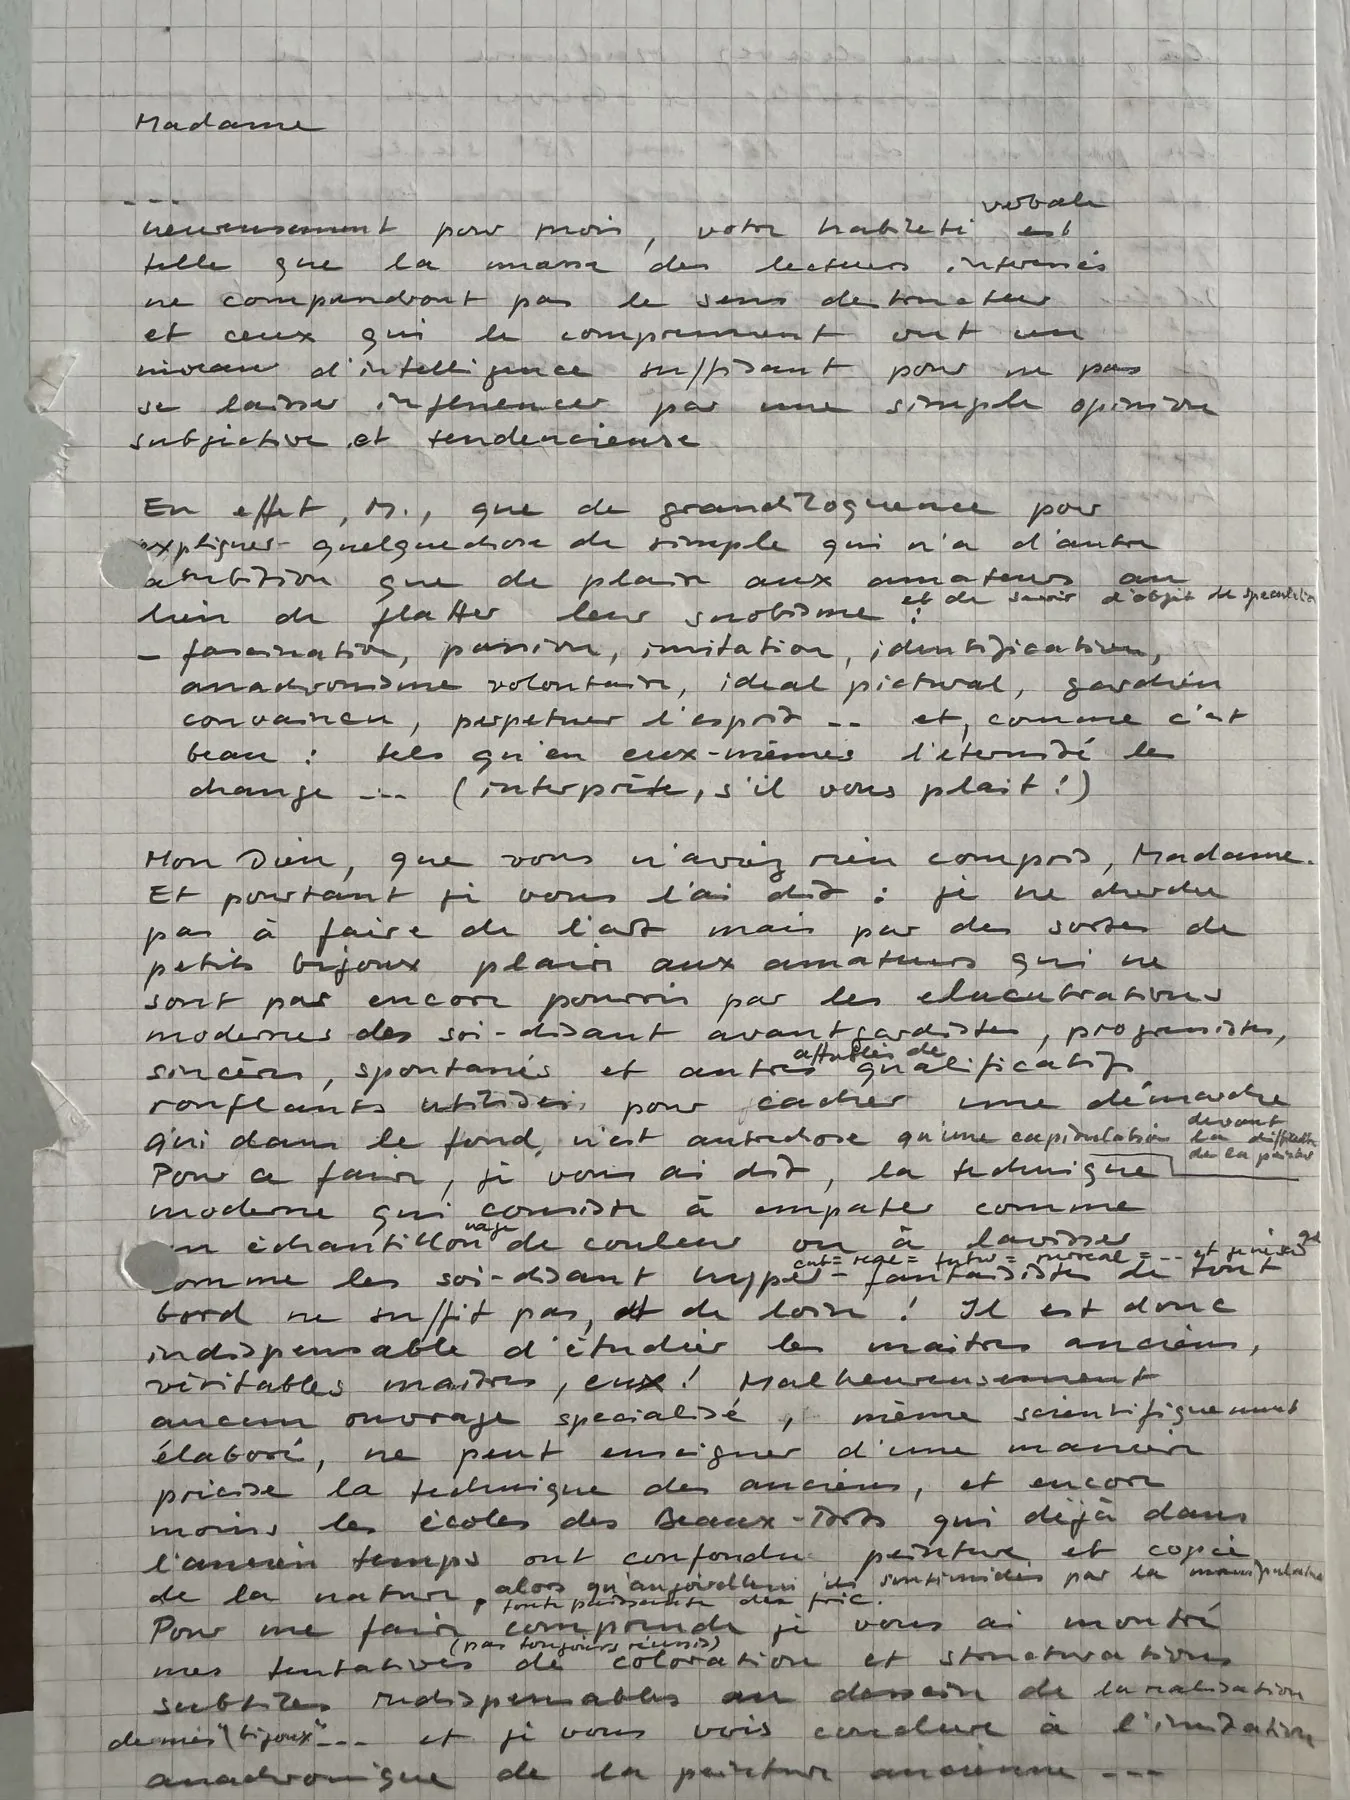 Madame
---
heureusement pour moi, votre habileté verbale est
telle que la masse des lecteurs interessés
ne comprendront pas le sens destructeur
et ceux qui le comprennent ont un
niveau d'intelligence suffisant pour ne pas
se laisser influencer par une simple opinion
subjective et tendencieuse
En effet, M., que de grandiloquence pour
expliquer quelquechose de simple qui n'a d'autre
ambition que de plaire aux amateurs au
lieu de flatter leur snobisme et de servir d'objet de speculation !
– fascination, passion, imitation, identification,
anachronisme volontaire, ideal pictural, gardien
convaincu, perpetuer l'esprit -- et, comme c'est
beau : tels qu'en eux-mêmes l'éternité les
change --- (interprète, s'il vous plait !)
Mon Dieu, que vous n'aviez rien compris, Madame.
Et pourtant je vous l'ai dit : je ne cherche
pas à faire de l'art mais par des sortes de
petits bijoux plaire aux amateurs qui ne
sont pas encore pourris par les elucubrations
modernes des soi-disant avantgardistes, progressistes,
sincères, spontanés et autres affublés de qualificatifs
ronflants utilisés pour cacher une démarche
qui dans le fond, n'est autrechose qu'une capitulation devant
la difficulté
de la peinture
Pour ce faire, je vous ai dit, la technique
moderne qui consiste à empater comme
un échantillon de couleur ou à laviser
comme les soi-disant hyper-fantaisistes de tout
bord ne suffit pas, et de loin ! Il est donc
indispensable d'étudier les maitres anciens,
véritables maitres, eux ! Malheureusement
aucun ouvrage specialisé, même scientifiquement
élaboré, ne peut enseigner d'une manière
précise la technique des anciens, et encore
moins les écoles des Beaux-Arts qui déjà dans
l'ancien temps ont confondu peinture et copie
de la nature, alors qu'aujourd'hui ils sont intimidés par la manipulation
toute puissante des fric.
Pour me faire comprendre je vous ai montré
mes tentatives (pas toujours réussis) de coloration et structurations
subtiles indispensables au dessein de la realisation
de mes "bijoux" --- et je vous vois conclure à l'imitation
anachronique de la peinture ancienne ---